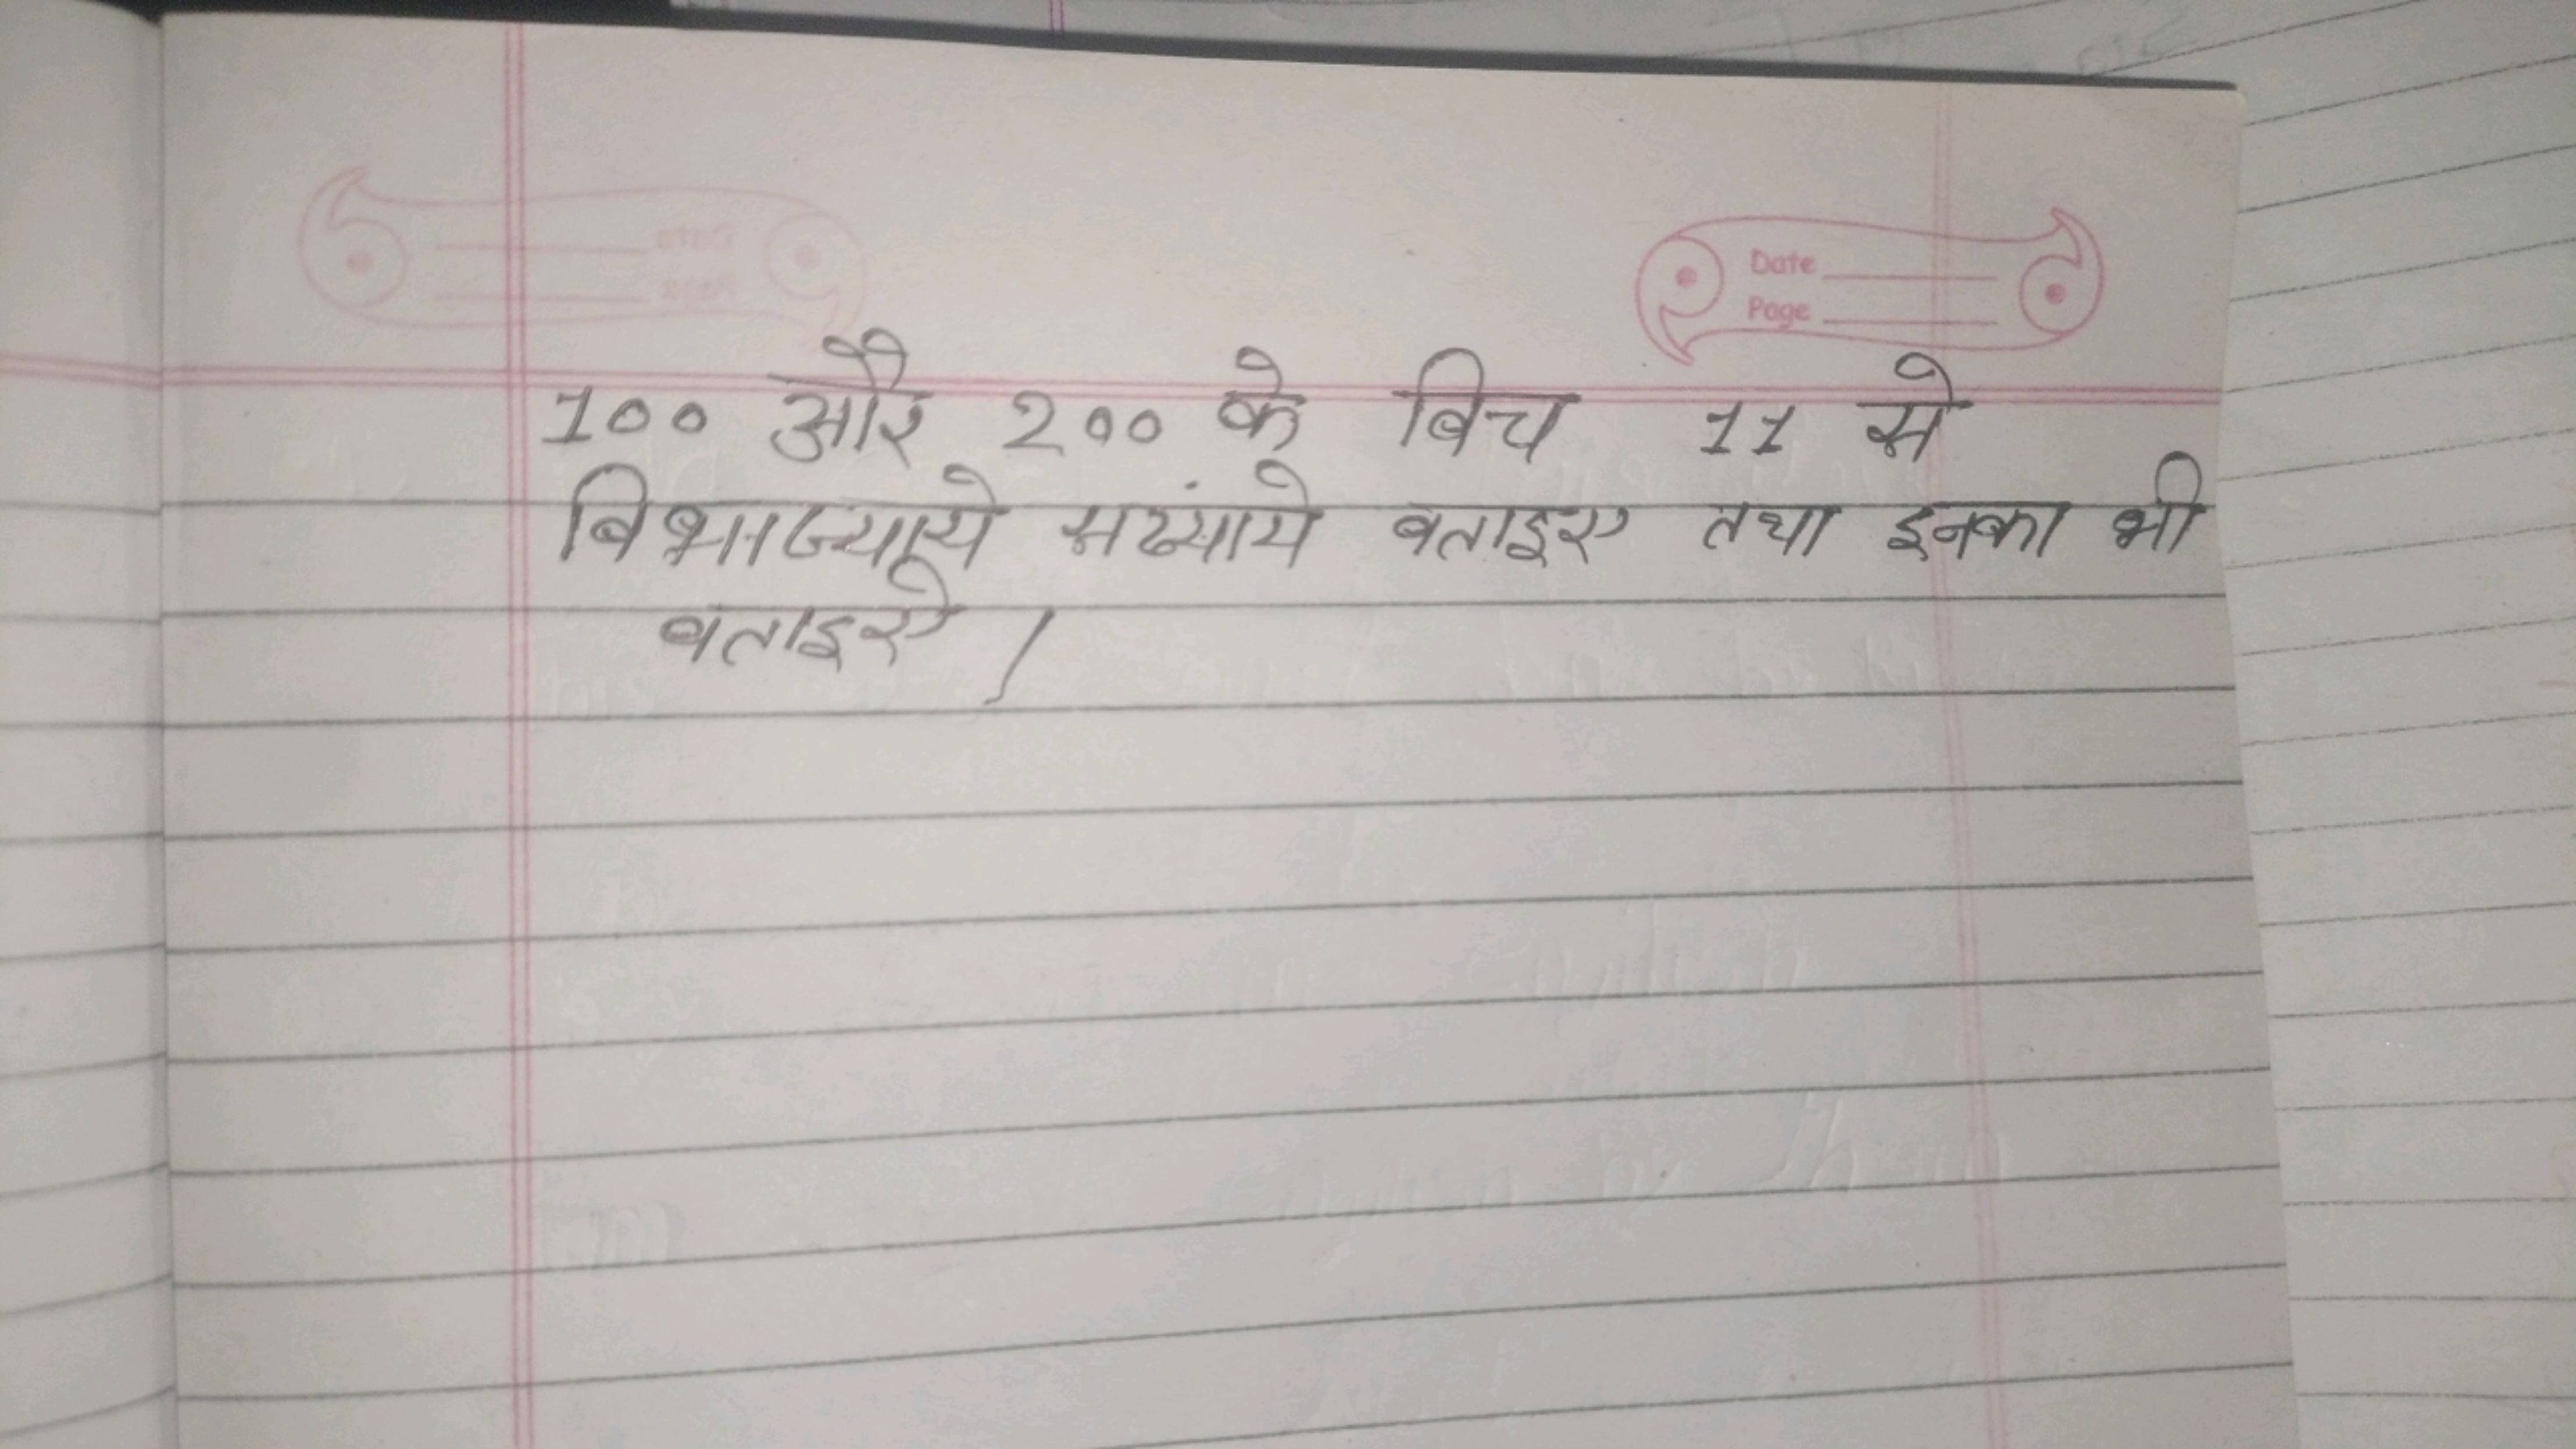 Date
Page
100 और 200 के बिच 11 से
विभाज्याये संख्याये बताइए तथा इनका भी
बताइए।